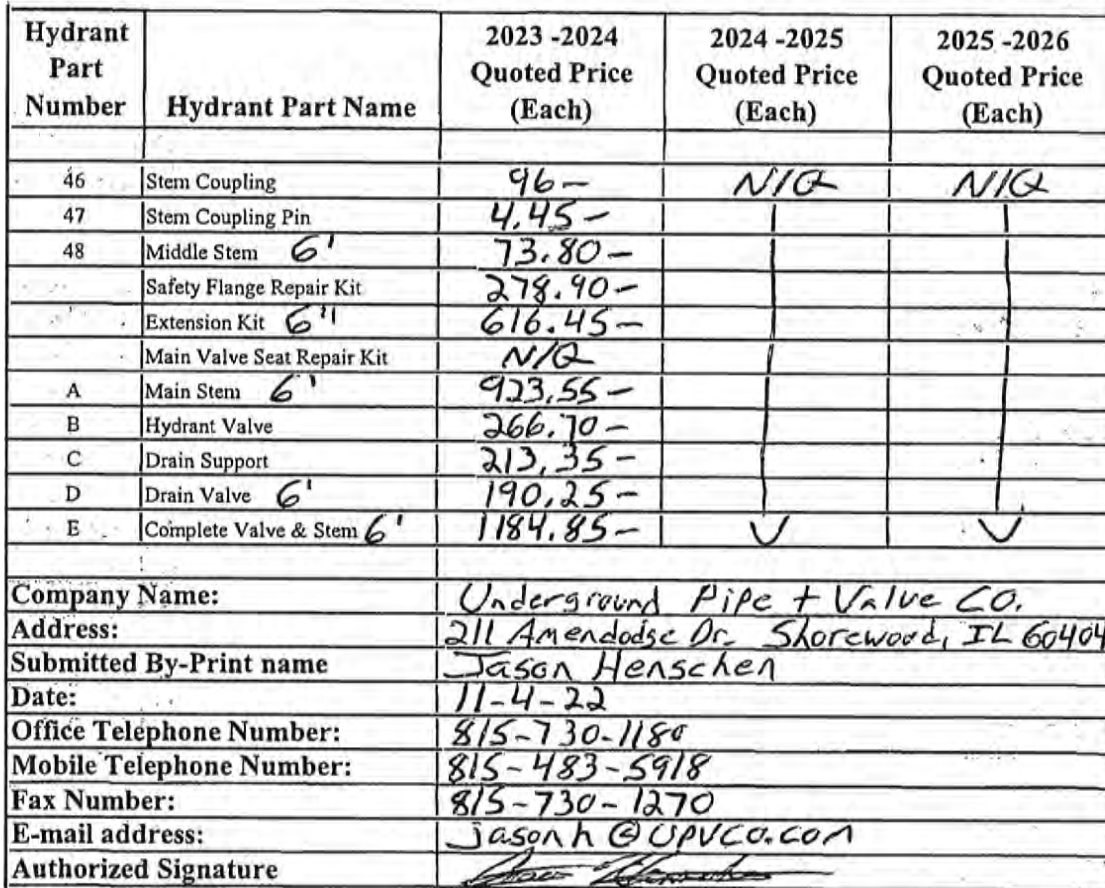 Hydrant Part Number Hydrant Part Name 2023 -2024 Quoted Price (Each) 2024 -2025 Quoted Price (Each) 2025 -2026 Quoted Price (Each)
46 Stem Coupling 96- N/Q N/Q
47 Stem Coupling Pin 4.45-
48 Middle Stem 6' 73.80-
Safety Flange Repair Kit 278.90-
Extension Kit 6" 616.45-
Main Valve Seat Repair Kit N/Q
A Main Stem 6' 923.55-
B Hydrant Valve 266.70-
C Drain Support 213.35-
D Drain Valve 6' 190.25-
E Complete Valve & Stem 6' 1184.85-
Company Name: Underground Pipe + Valve Co.
Address: 211 Amendodge Dr. Shorewood, IL 60404
Submitted By-Print name Jason Henschen
Date: 11-4-22
Office Telephone Number: 815-730-1180
Mobile Telephone Number: 815-483-5918
Fax Number: 815-730-1270
E-mail address: jasonh@UPVCO.com
Authorized Signature